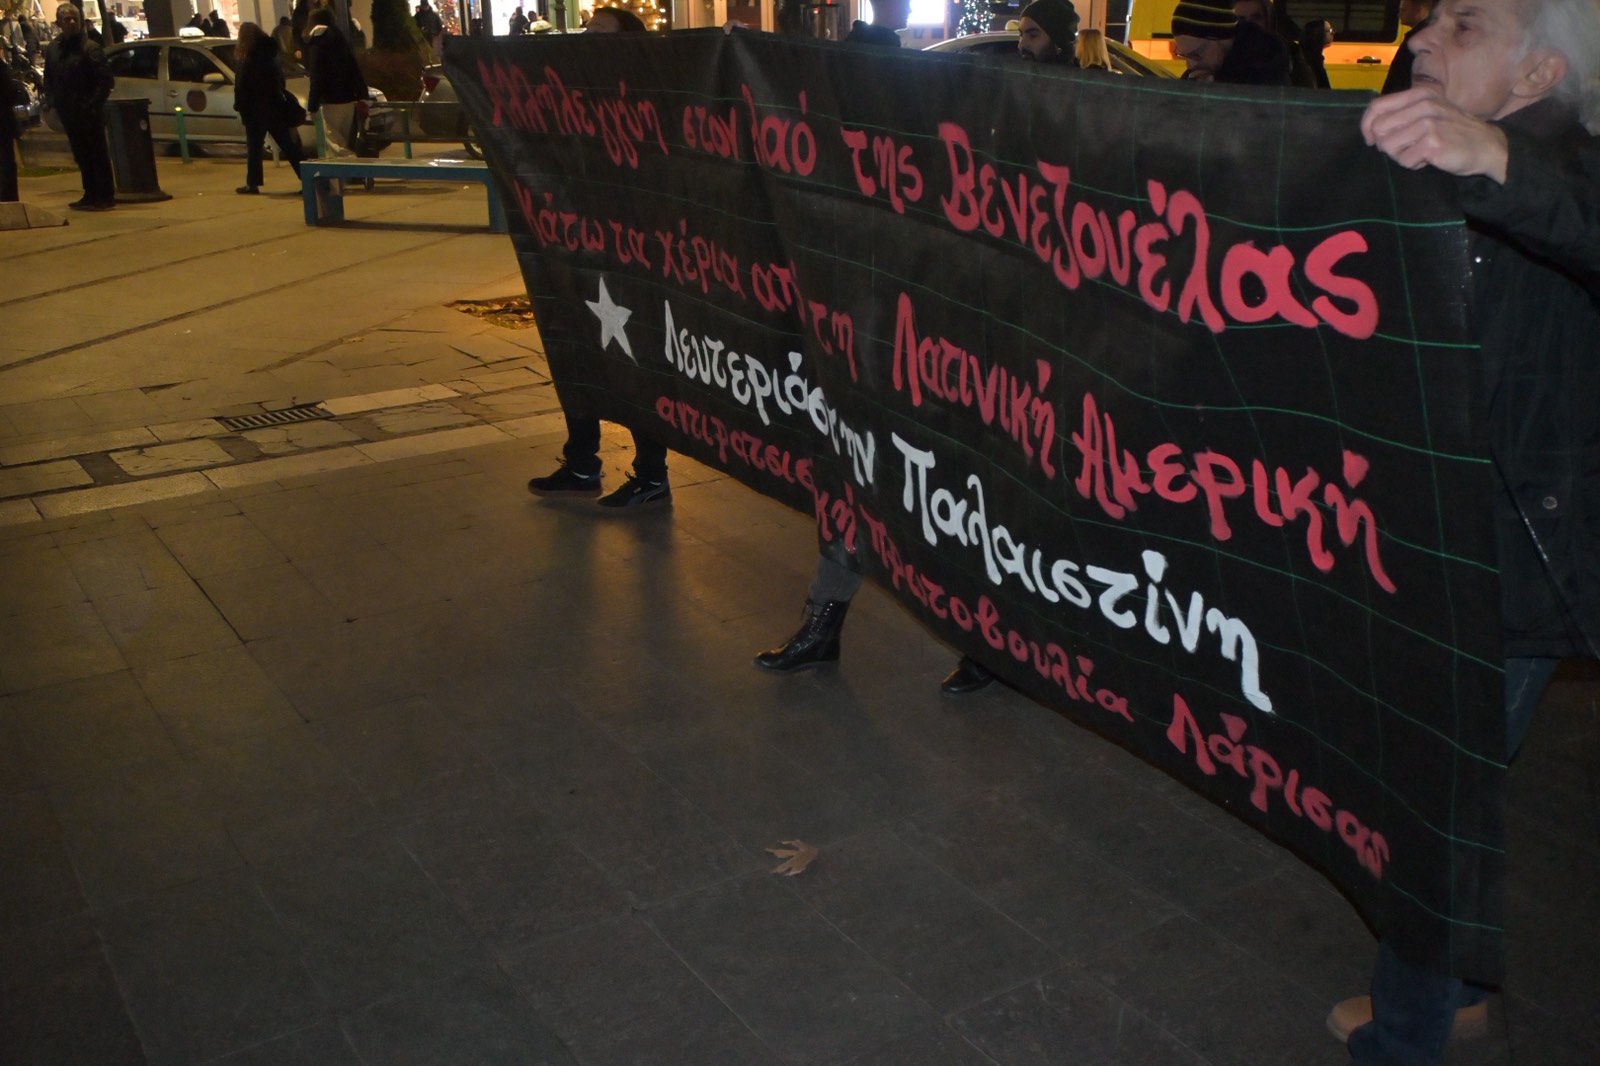 Αλληλεγγύη στον λαό της Βενεζουέλας
Κάτω τα χέρια από τη Λατινική Αμερική
Λευτεριά στην Παλαιστίνη
αντιρατσιστική πρωτοβουλία Λάρισας